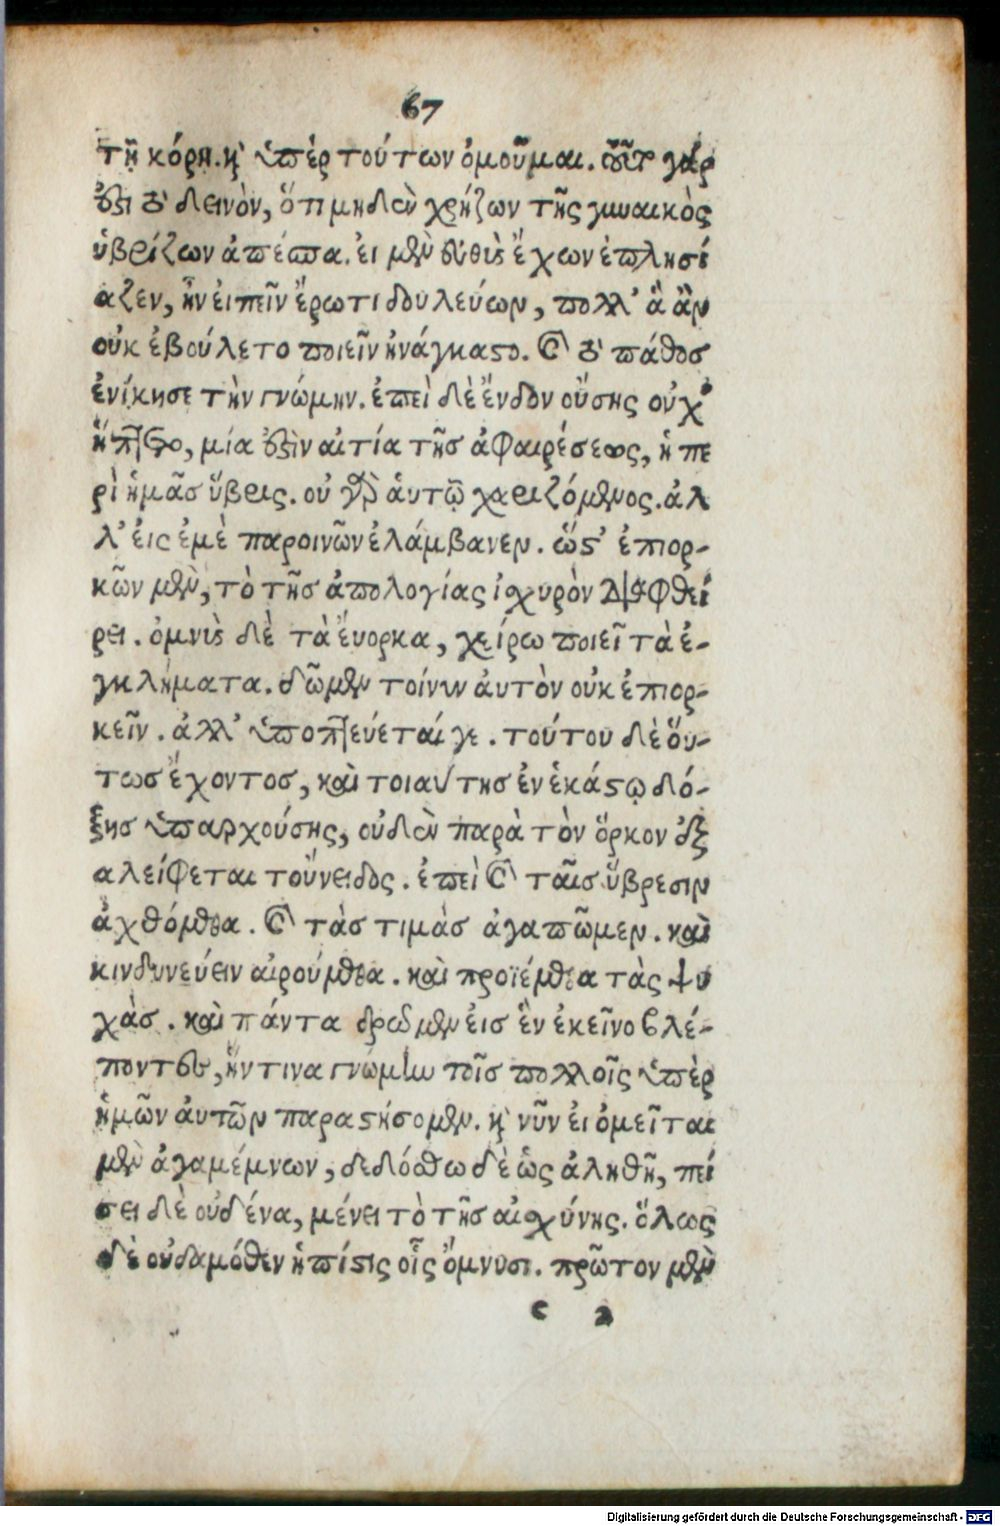 67
τῇ κόρῃ. κ̀ ὑπὲρ τούτων ὀμοῦμαι. τοῦτο γάρ
ἐστι τὸ δεινὸν, ὅτι μηδὲν χρήζων τῆς γυναικὸς
ὑβρίζων ἀπέσπα. εἰ μὲν εὐθὺς ἔχων ἐπλησί
αζεν, ἦν εἰπεῖν ἔρωτι δουλεύων, πολλ' ἃ ἂν
οὐκ ἐβούλετο ποιεῖν ἠνάγκαστο. καὶ τὸ πάθος
ἐνίκησε τὴν γνώμην. ἐπεὶ δὲ ἔνδον οὔσης οὐχ
ἥπτετο, μία ἐστὶν αἰτία τῆς ἀφαιρέσεως, ἡ πε
ρὶ ἡμᾶς ὕβρις. οὐ γὰρ ἁυτῷ χαριζόμενος. ἀλ
λ' εἰς ἐμὲ παροινῶν ἐλάμβανεν. ὥστ' ἐπιορ-
κῶν μὲν, τὸ τῆς ἀπολογίας ἰσχυρὸν διαφθεί
ρει. ὀμνὺς δὲ τὰ ἔυορκα, χείρω ποιεῖ τὰ ἐ-
γκλήματα. δῶμεν τοίνυν ἀυτὸν οὐκ ἐπιορ-
κεῖν. ἀλλ' ὑποπτεύεταί γε. τούτου δὲ ὅυ-
τως ἔχοντος, καὶ τοιαύτης ἐν ἑκάστῳ δό-
ξης ὑπαρχούσης, οὐδὲν παρὰ τὸν ὅρκον ἐξ
αλείφεται τοὔνειδος. ἐπεὶ καὶ ταῖς ὕβρεσιν
ἀχθόμεθα. καὶ τὰς τιμὰς ἀγαπῶμεν. καὶ
κινδυνεύειν αἱρούμεθα. καὶ προϊέμεθα τὰς ψυ
χάς. καὶ πάντα δρῶμεν εἰς ἓν ἐκεῖνο βλέ-
ποντες, ἥντινα γνώμην τοῖς πολλοῖς ὑπὲρ
ἡμῶν ἀυτῶν παραστήσομεν. κ̀ νῦν εἰ ὀμεῖται
μὲν ἀγαμέμνων, δεδόσθω δὲ ὡς ἀληθῆ, πεί
σει δὲ οὐδένα, μένει τὸ τῆς αἰσχύνης. ὅλως
δὲ οὐδαμόθεν ἡ πίστις οἷς ὄμνυσι. πρῶτον μὲν
c 2
Digitalisierung gefördert durch die Deutsche Forschungsgemeinschaft - DFG